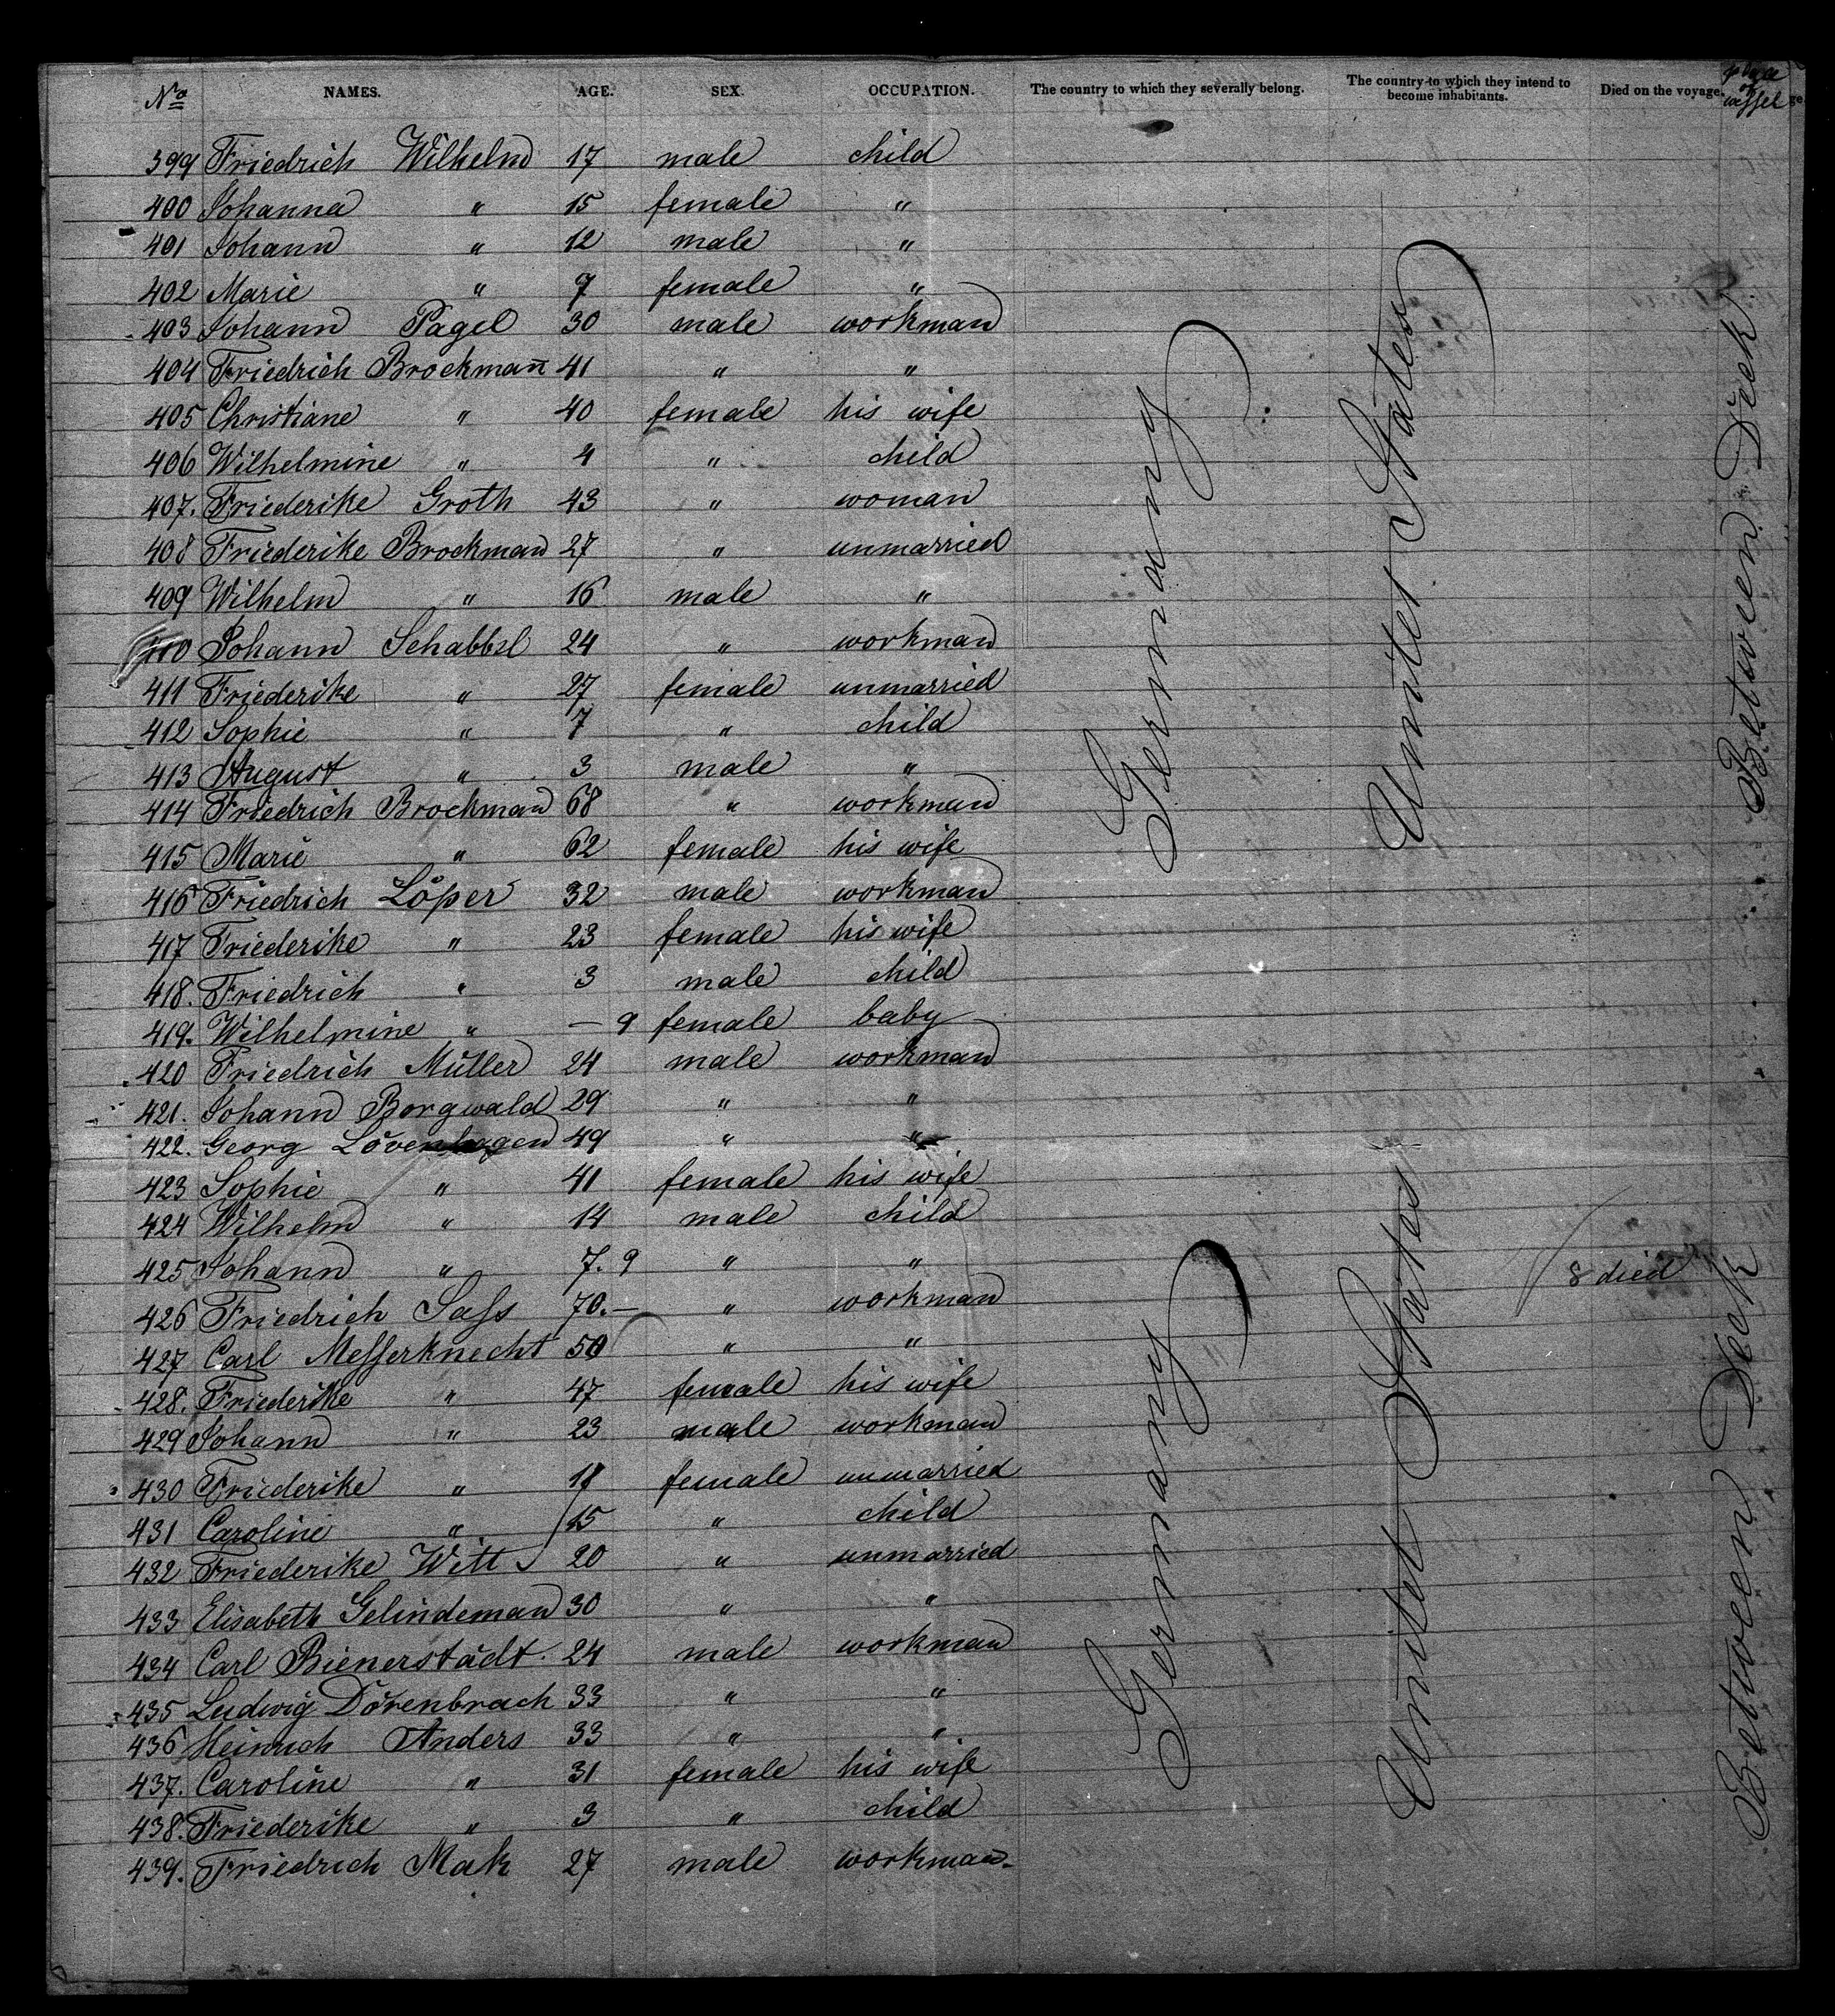 No NAMES. AGE. SEX. OCCUPATION. The country to which they severally belong. The country to which they intend to become inhabitants. Died on the voyage. place of vessel ge.
399 Friedrich Wilhelm 17 male child
400 Johanna " 15 female "
401 Johann " 12 male "
402 Marie " 9 female "
403 Johann Pagel 30 male workman
404 Friedrich Brockman 41 " "
405 Christiane " 40 female his wife
406 Wilhelmine " 4 " child
407. Friederike Groth 43 " woman
408 Friederike Brockman 27 " unmarried
409 Wilhelm " 16 male "
410 Johann Schabbel 24 " workman
411 Friederike " 27 female unmarried
412 Sophie " 7 " child
413 August " 3 male "
414 Friedrich Brockman 68 " workman
415 Marie " 62 female his wife
416 Friedrich Löper 32 male workman
417 Friederike " 23 female his wife
418. Friedrich " 3 male child
419. Wilhelmine " – 9 female baby
420 Friedrich Müller 24 male workman
421. Johann Borgwald 29 " "
422. Georg Lövenhagen 49 " "
423 Sophie " 41 female his wife
424 Wilhelm " 14 male child
425 Johann " 7. 9 " " 8 died
426 Friedrich Sass 70.– " workman
427 Carl Messerknecht 50 " "
428. Friederike " 47 female his wife
429 Johann " 23 male workman
430 Friederike " 18 female unmarried
431 Caroline " 15 " child
432 Friederike Witt 20 " unmarried
433 Elisabeth Gelindeman 30 " "
434 Carl Bienerstädt. 24 male workman
435 Ludwig Dörenbrach 33 " "
436 Heinrich Anders 33 " "
437. Caroline " 31 female his wife
438. Friederike " 3 " child
439. Friedrich Mak 27 male workman.
Germany
Germany
Unitet States
Unitet States
Betveen Deck
Betveen Deck